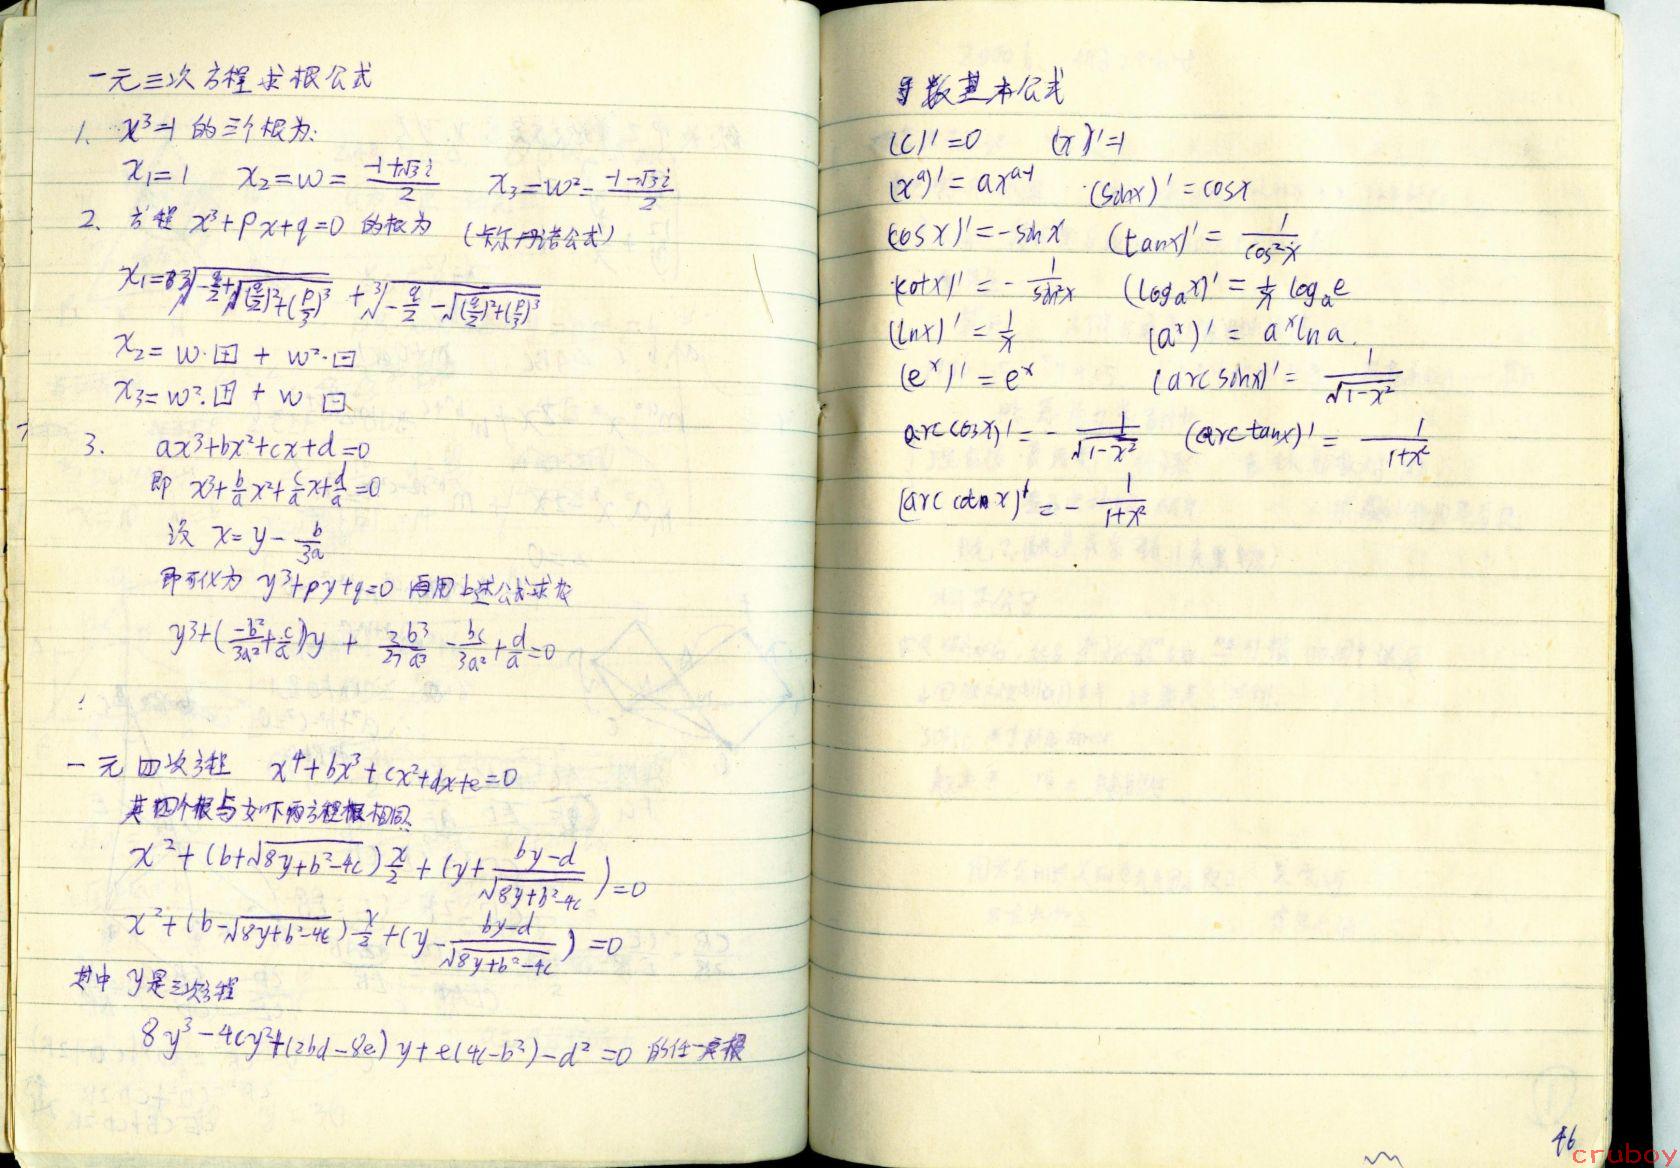 一元三次方程求根公式
1. x³=1 的三个根为:
x₁=1 x₂=w=(-1+√3i)/2 x₃=w²=(-1-√3i)/2
2. 方程 x³+px+q=0 的根为 (卡尔丹诺公式)
x₁=∛(-q/2+√((q/2)²+(p/3)³)) + ∛(-q/2-√((q/2)²+(p/3)³))
x₂=w·田 + w²·日
x₃=w²·田 + w 日
3. ax³+bx²+cx+d=0
即 x³+b/a x²+c/a x+d/a=0
设 x=y-b/3a
即可化为 y³+py+q=0 再用上述公式求
y³+(-b²/3a²+c/a)y + 2b³/27a³-bc/3a²+d/a=0
一元四次方程 x⁴+bx³+cx²+dx+e=0
其四个根与如下两方程根相同
x²+(b+√(8y+b²-4c))x/2+(y+(by-d)/√(8y+b²-4c))=0
x²+(b-√(8y+b²-4c))x/2+(y-(by-d)/√(8y+b²-4c))=0
其中 y是三次方程
8y³-4cy²+(2bd-8e)y+e(4c-b²)-d²=0 的任一实根
导数基本公式
(c)'=0 (x)'=1
(xᵃ)'=axᵃ⁻¹ (sinx)'=cosx
(cosx)'=-sinx (tanx)'=1/cos²x
(cotx)'=-1/sin²x (logₐx)'=1/x logₐe
(lnx)'=1/x (aˣ)'=aˣlna.
(eˣ)'=eˣ (arcsinx)'=1/√(1-x²)
(arccosx)'=-1/√(1-x²) (arctanx)'=1/(1+x²)
(arccotx)'=-1/(1+x²)
46
cruboy